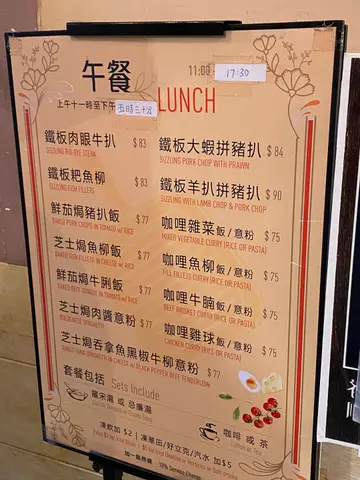 午餐
11:00 17:30
上午十一時至下午五時三十分 LUNCH
鐵板肉眼牛扒 $83
SIZZLING RIB-EYE STEAK
鐵板粑魚柳 $83
SIZZLING FISH FILLETS
鮮茄焗豬扒飯 $77
BAKED PORK CHOPS IN TOMATO w/ RICE
芝士焗魚柳飯 $77
BAKED FISH FILLETS IN CHEESE w/ RICE
鮮茄焗牛脷飯 $77
BAKED BEEF TONGUE IN TOMATO w/ RICE
芝士焗肉醬意粉 $77
BOLOGNESE SPAGHETTI
芝士焗吞拿魚黑椒牛柳意粉 $77
BAKED TUNA SPAGHETTI IN CHEESE w/ BLACK PEPPER BEEF TENDERLOIN
鐵板大蝦拼豬扒 $84
SIZZLING PORK CHOP WITH PRAWN
鐵板羊扒拼豬扒 $90
SIZZLING WITH LAMB CHOP & PORK CHOP
咖哩雜菜飯/意粉 $75
MIXED VEGETABLE CURRY (RICE OR PASTA)
咖哩魚柳飯/意粉 $75
FISH FILLETS CURRY (RICE OR PASTA)
咖哩牛腩飯/意粉 $75
BEEF BRISKET CURRY (RICE OR PASTA)
咖哩雞球飯/意粉 $75
CHICKEN CURRY (RICE OR PASTA)
套餐包括 Sets Include
羅宋湯 或 忌廉湯
咖啡 或 茶
Coffee or Tea
凍飲加 $2 | 凍華田/好立克/汽水 加 $5
加一服務費 10% Service Charge